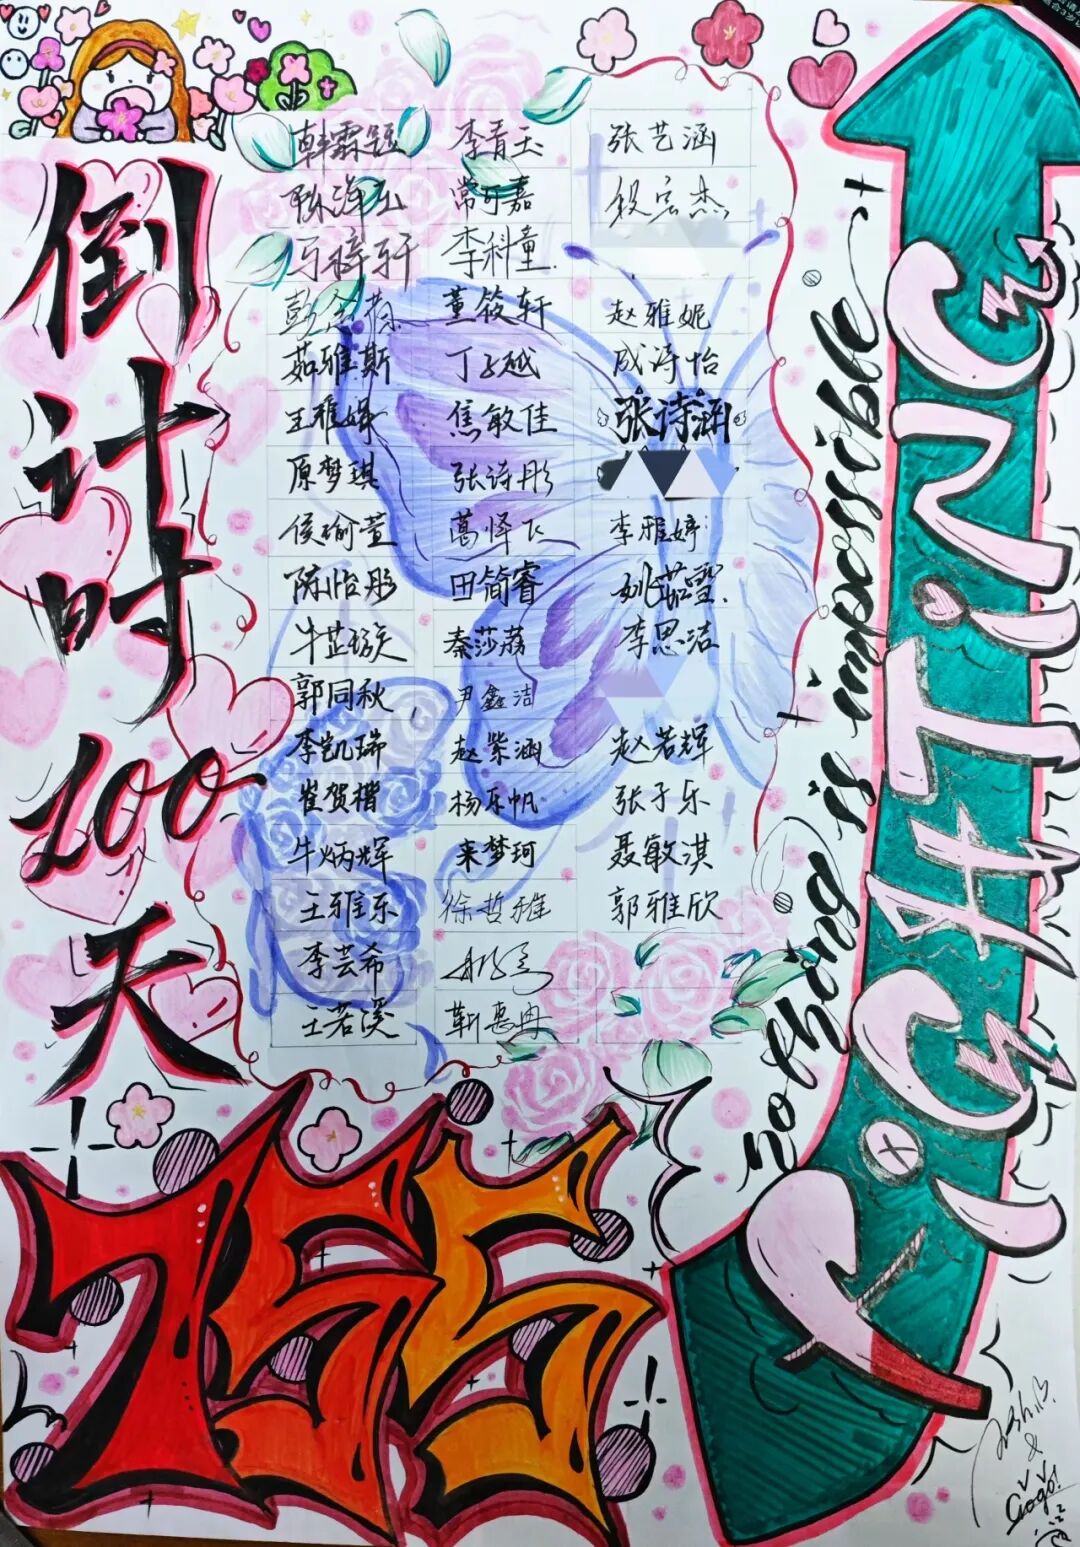 倒计时200天
李青玉
张艺涵
常可嘉
段宏杰
李科童
董筱轩
赵雅妮
茹雅斯
丁子越
成涛怡
焦敏佳
张诗涵
原梦琪
张诗彤
侯瑜萱
李雅婷
陈怡彤
田简睿
姚茹雪
牛芷璇
秦莎荔
李思洁
郭同秋
尹鑫洁
李凯瑞
赵紫涵
赵若辉
崔贺楷
杨乐帆
张子乐
牛炳辉
来梦珂
聂敏淇
王雅乐
徐哲雅
郭雅欣
李芸希
王若溪
靳惠冉
nothing is impossible
FiGHTiNG
755
& GoGo!